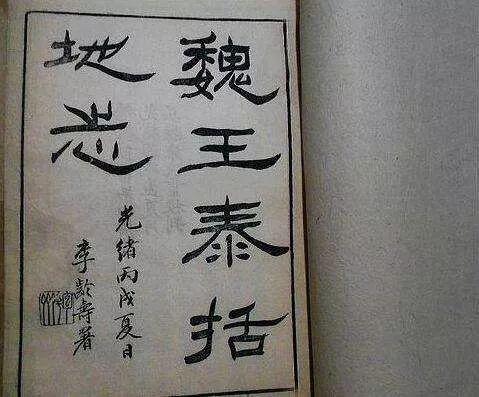 魏王泰括
地志
光緒丙戌夏日
李齡壽署